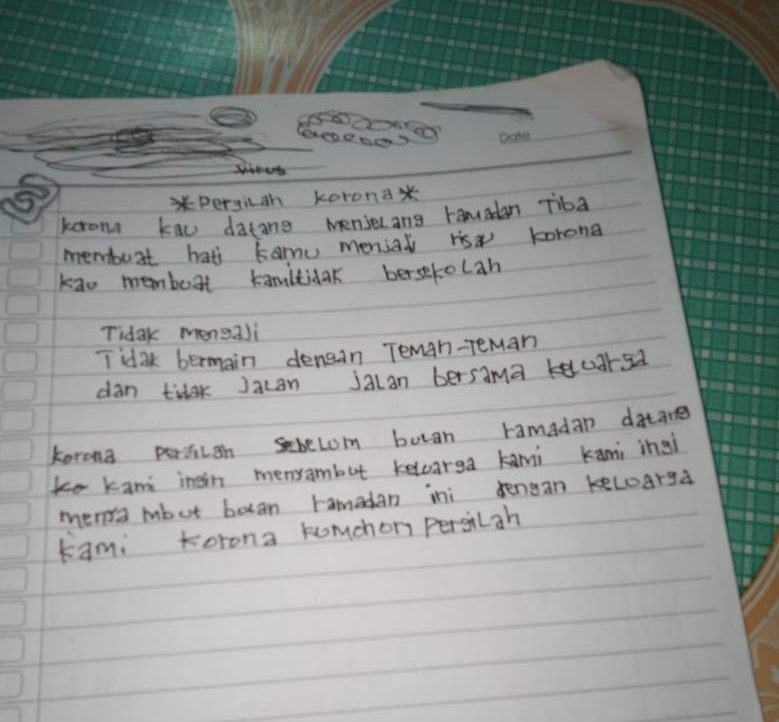 Date
Virus
*Pergilah korona*
korona kau datang menjelang ramadan Tiba
membuat hati kamu menjadi risau korona
kau membuat kamitidak bersekolah
Tidak mengaji
Tidak bermain dengan Teman-Teman
dan tidak Jalan jalan bersama keluarga
korona pergilah sebelum bulan ramadan datang
ke kami ingin menyambut keluarga kami kami ingi
menyambut bulan ramadan ini dengan keluarga
kami korona kumohon pergilah